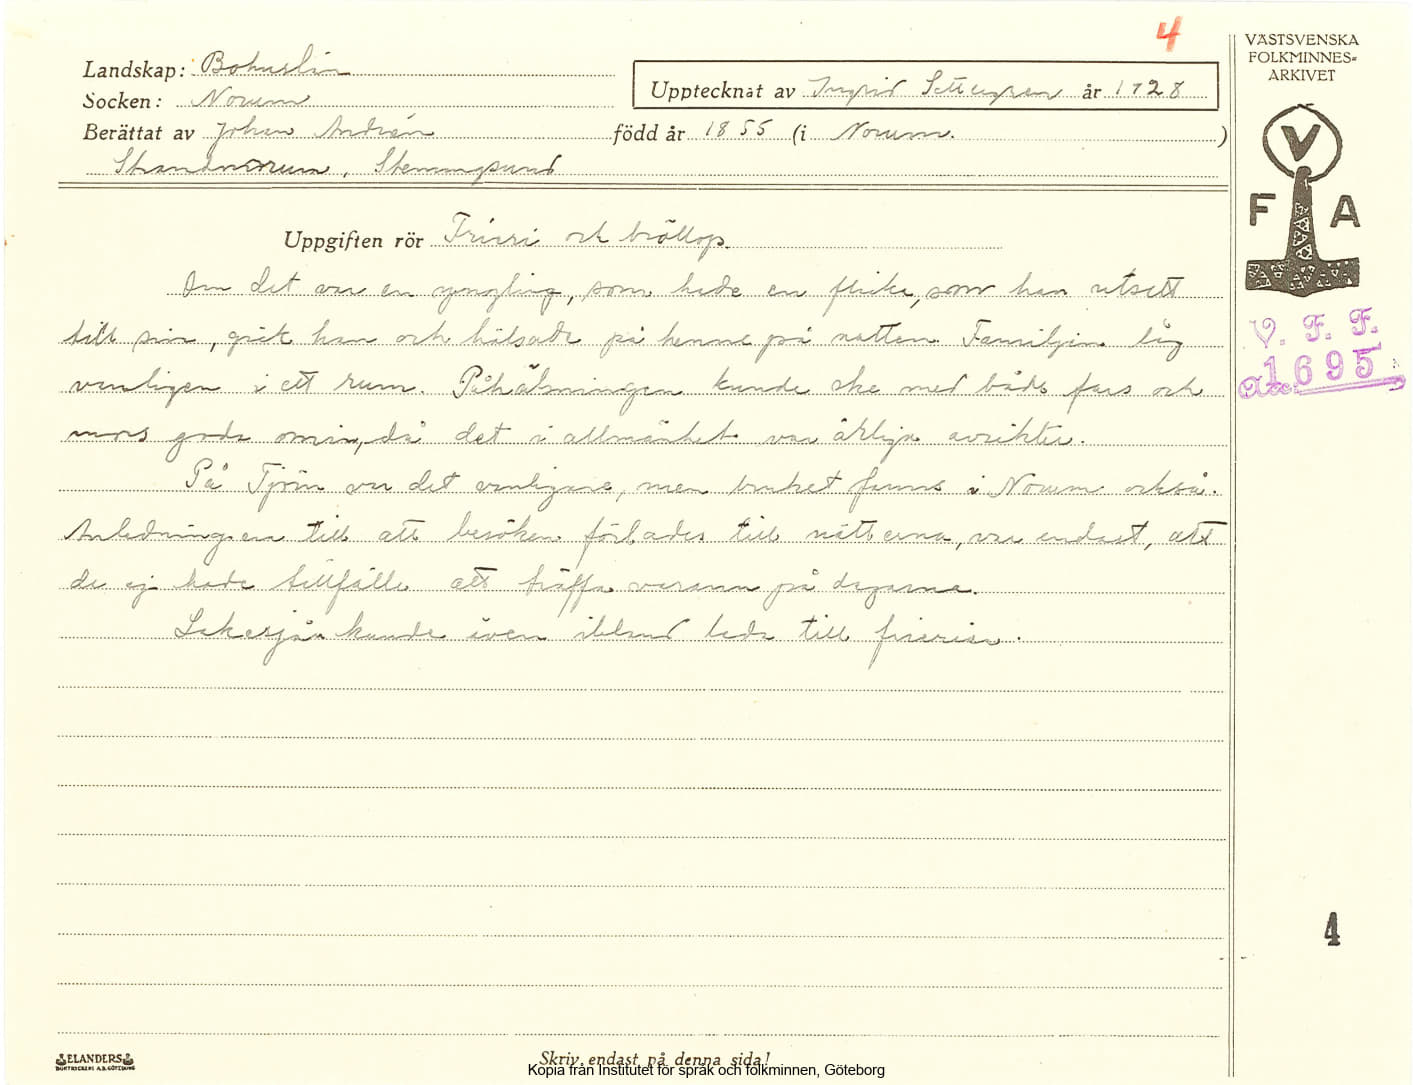 4
VÄSTSVENSKA
FOLKMINNES=
ARKIVET
Landskap: Bohuslän
Upptecknat av Ingrid år 1928
Socken: Norum
Berättat av Johan Andrén född år 1855 (i Norum.)
Strandnorum, Stenungsund
V
F A
Uppgiften rör Frieri och bröllop.
Om det var en yngling, som hade en flicka, som han utsett
till sin, gick han och hälsade på henne på natten. Familjen låg
vanligen i ett rum. Påhälsningen kunde ske med både fars och
mors goda minne, då det i allmänhet var ärliga avsikter.
På Tjörn var det vanligare, men bruket fanns i Norum också.
Anledningen till att besöken förlades till nätterna, var endast, att
de ej hade tillfälle att träffa varann på dagarna.
Lekesjån kunde även ibland leda till frierier.
V. F. F.
Acc. 1695
4
ELANDERS
BOKTRYCKERI A.B. GÖTEBORG
Skriv endast på denna sida!
Kopia från Institutet för språk och folkminnen, Göteborg